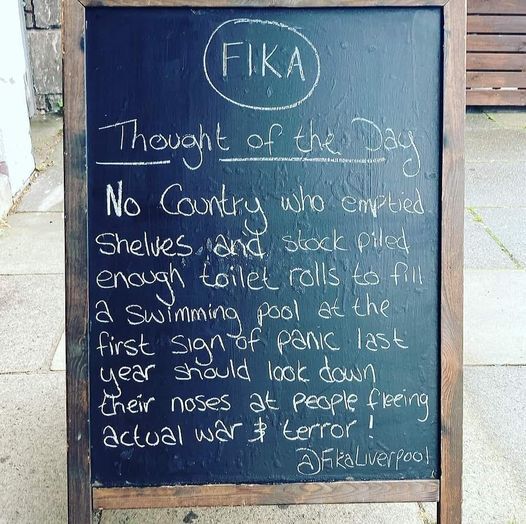 FIKA
Thought of the Day
No Country who emptied
shelves and stock piled
enough toilet rolls to fill
a swimming pool at the
first sign of panic last
year should look down
their noses at people fleeing
actual war & terror!
@FikaLiverpool